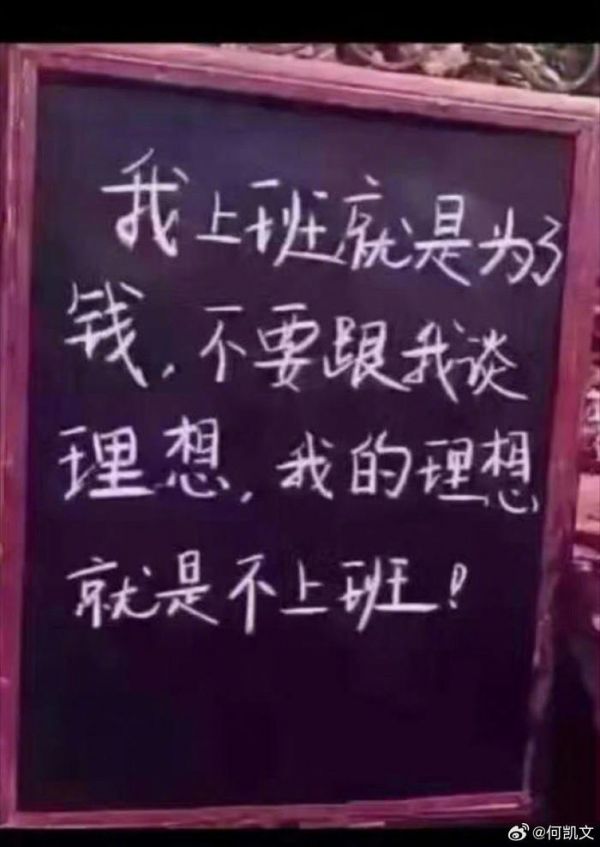 我上班就是为了
钱，不要跟我谈
理想，我的理想
就是不上班！
@何凯文